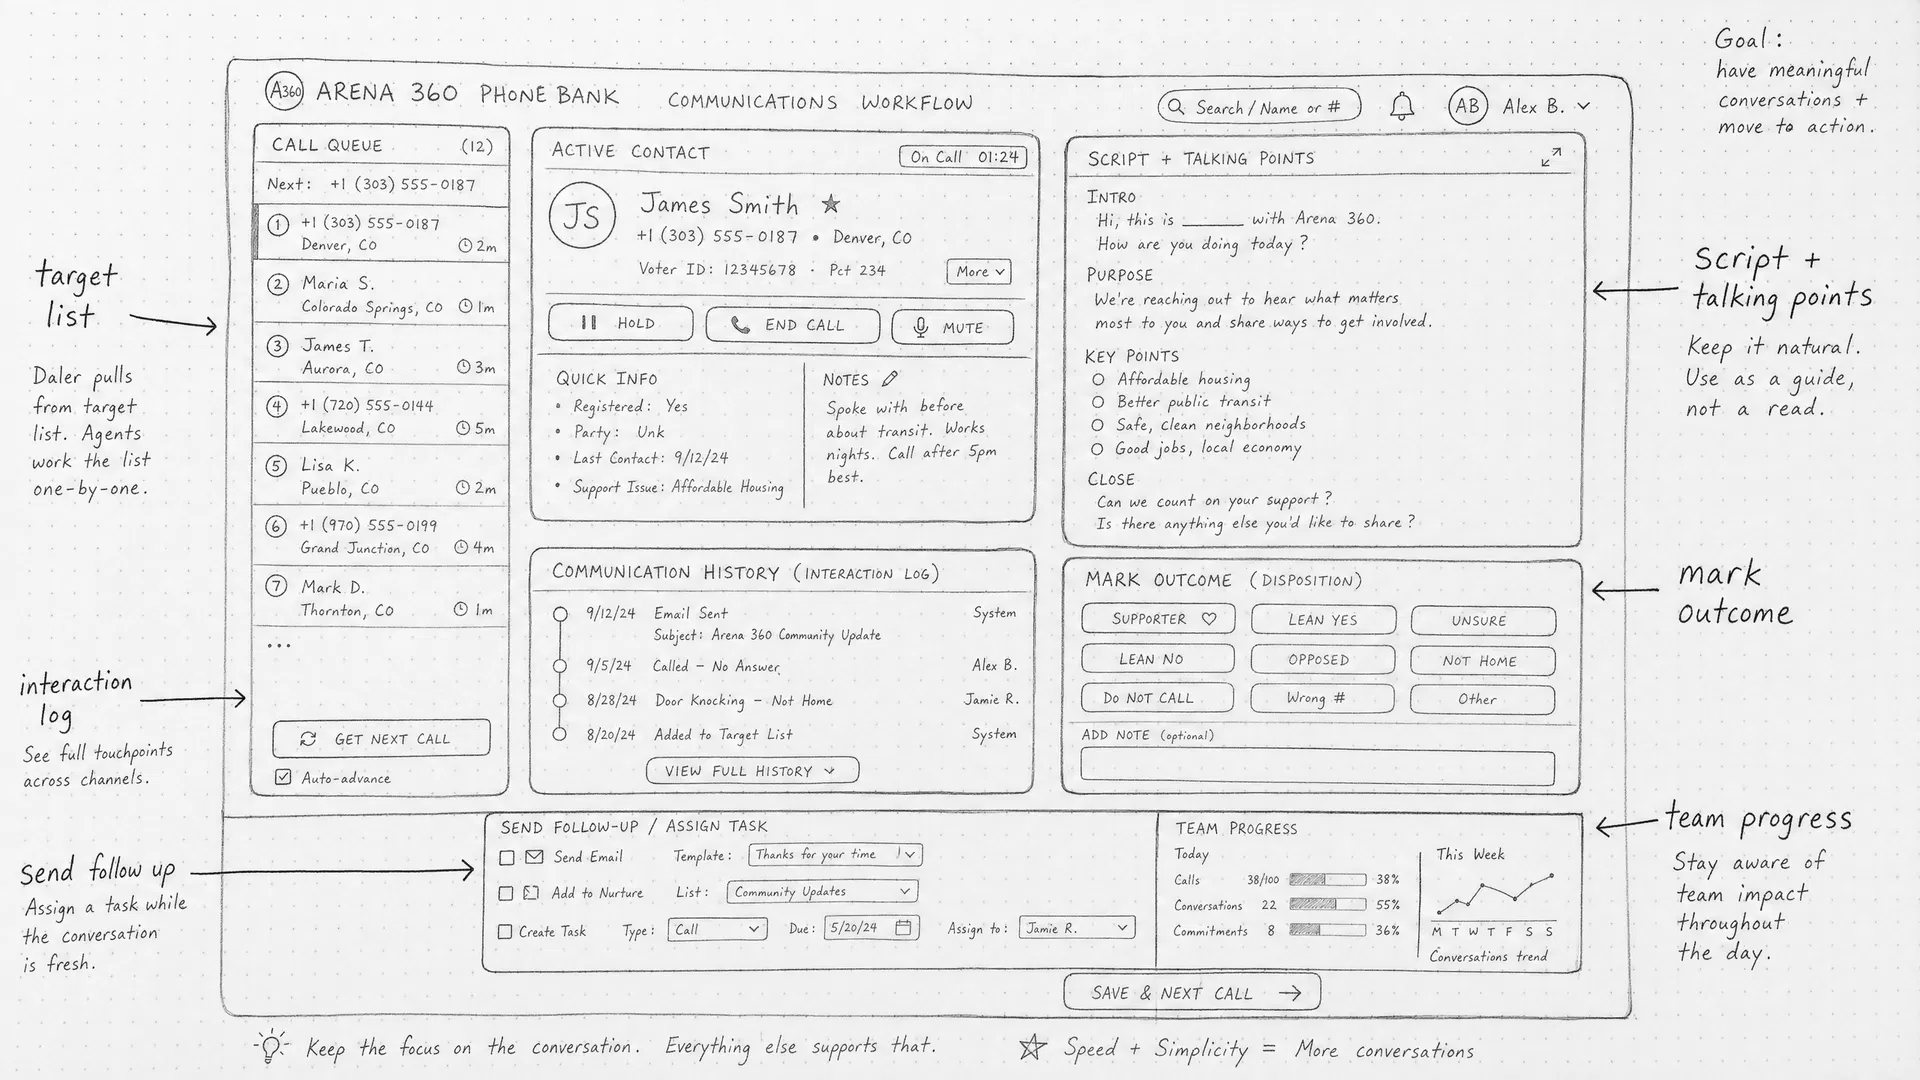 Goal:
have meaningful
conversations +
move to action.
A360 ARENA 360 PHONE BANK COMMUNICATIONS WORKFLOW
Search / Name or #
AB Alex B.
CALL QUEUE (12)
Next: +1 (303) 555-0187
1 +1 (303) 555-0187
Denver, CO 2m
2 Maria S.
Colorado Springs, CO 1m
3 James T.
Aurora, CO 3m
4 +1 (720) 555-0144
Lakewood, CO 5m
5 Lisa K.
Pueblo, CO 2m
6 +1 (970) 555-0199
Grand Junction, CO 4m
7 Mark D.
Thornton, CO 1m
...
GET NEXT CALL
Auto-advance
ACTIVE CONTACT On Call 01:24
JS James Smith ★
+1 (303) 555-0187 • Denver, CO
Voter ID: 12345678 · Pct 234 More
HOLD END CALL MUTE
QUICK INFO
• Registered: Yes
• Party: Unk
• Last Contact: 9/12/24
• Support Issue: Affordable Housing
NOTES
Spoke with before
about transit. Works
nights. Call after 5pm
best.
COMMUNICATION HISTORY (INTERACTION LOG)
9/12/24 Email Sent System
Subject: Arena 360 Community Update
9/5/24 Called – No Answer Alex B.
8/28/24 Door Knocking – Not Home Jamie R.
8/20/24 Added to Target List System
VIEW FULL HISTORY
SCRIPT + TALKING POINTS
INTRO
Hi, this is ______ with Arena 360.
How are you doing today?
PURPOSE
We're reaching out to hear what matters
most to you and share ways to get involved.
KEY POINTS
Affordable housing
Better public transit
Safe, clean neighborhoods
Good jobs, local economy
CLOSE
Can we count on your support?
Is there anything else you'd like to share?
MARK OUTCOME (DISPOSITION)
SUPPORTER LEAN YES UNSURE
LEAN NO OPPOSED NOT HOME
DO NOT CALL Wrong # Other
ADD NOTE (optional)
SEND FOLLOW-UP / ASSIGN TASK
Send Email Template: Thanks for your time
Add to Nurture List: Community Updates
Create Task Type: Call Due: 5/20/24 Assign to: Jamie R.
TEAM PROGRESS
Today
Calls 38/100 38%
Conversations 22 55%
Commitments 8 36%
This Week
M T W T F S S
Conversations trend
SAVE & NEXT CALL →
target
list
Daler pulls
from target
list. Agents
work the list
one-by-one.
interaction
log
See full touchpoints
across channels.
Send follow up
Assign a task while
the conversation
is fresh.
Script +
talking points
Keep it natural.
Use as a guide,
not a read.
mark
outcome
team progress
Stay aware of
team impact
throughout
the day.
Keep the focus on the conversation. Everything else supports that.
Speed + Simplicity = More conversations